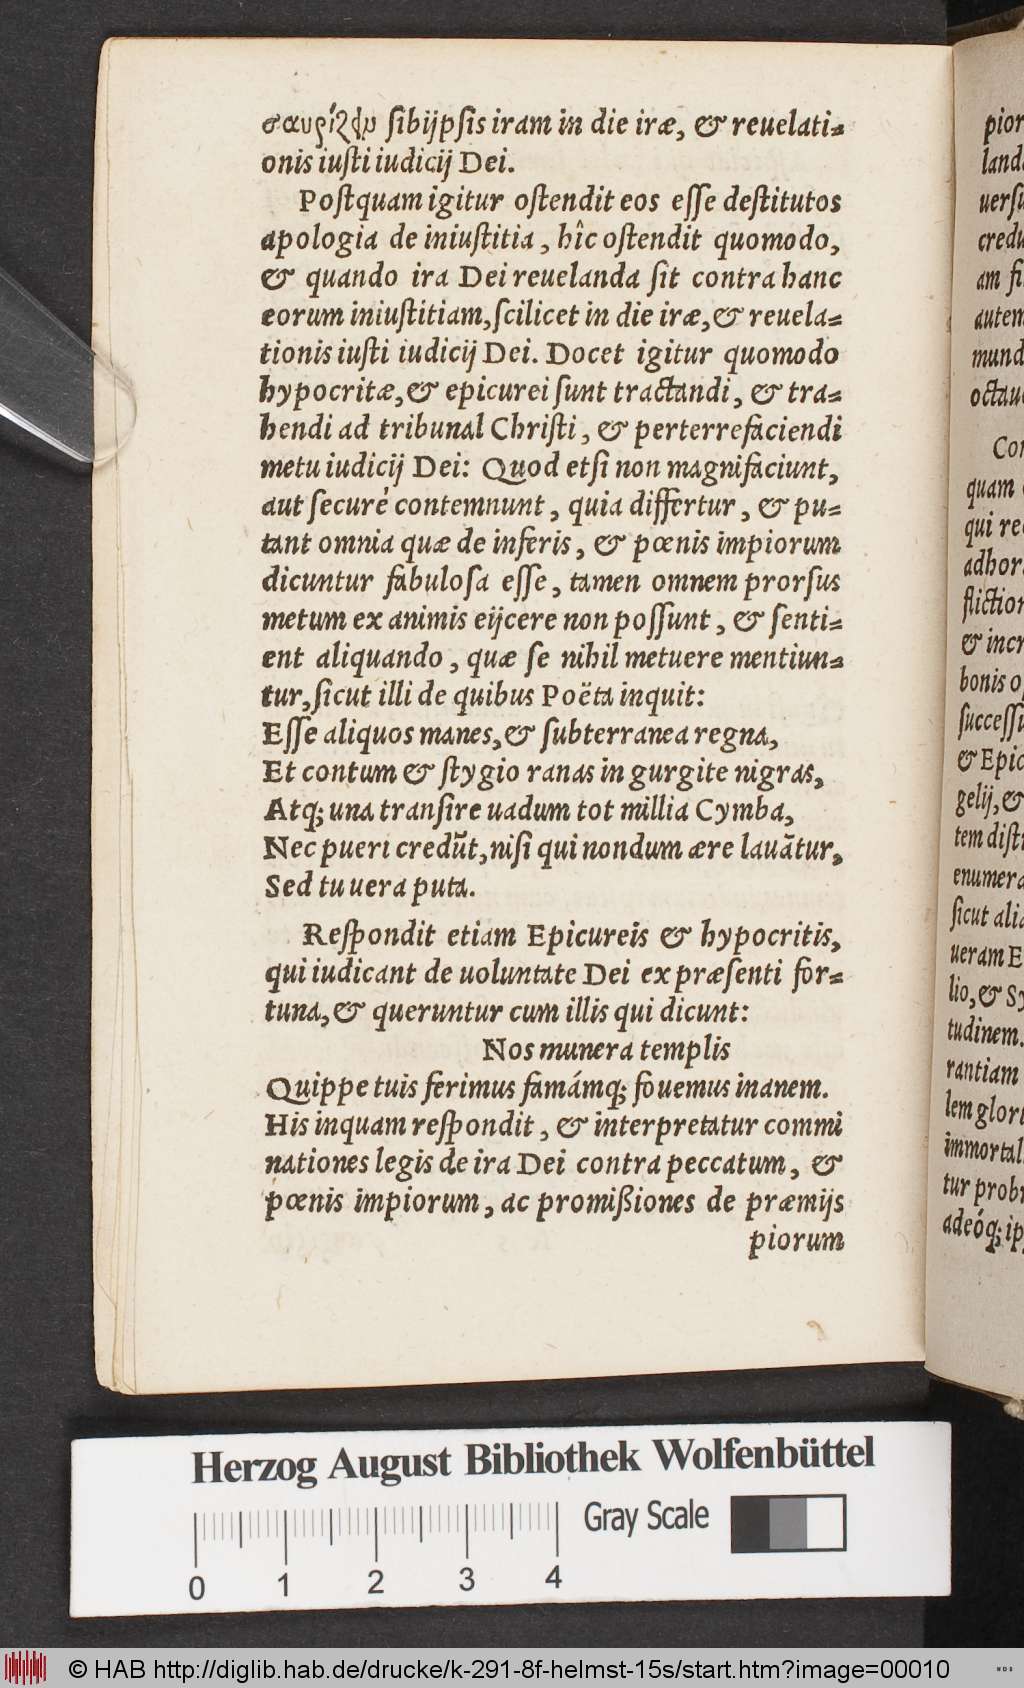 σαυρίζῳν ſibijpſis iram in die iræ, & reuelati=
onis iuſti iudicij Dei.
Poſtquam igitur oſtendit eos eſſe deſtitutos
apologia de iniuſtitia, hîc oſtendit quomodo,
& quando ira Dei reuelanda ſit contra hanc
eorum iniuſtitiam, ſcilicet in die iræ, & reuela=
tionis iuſti iudicij Dei. Docet igitur quomodo
hypocritæ, & epicurei ſunt tractandi, & tra=
hendi ad tribunal Chriſti, & perterrefaciendi
metu iudicij Dei: Quod etſi non magnifaciunt,
aut ſecurè contemnunt, quia differtur, & pu=
tant omnia quæ de inferis, & pœnis impiorum
dicuntur fabuloſa eſſe, tamen omnem prorſus
metum ex animis eijcere non poſſunt, & ſenti=
ent aliquando, quæ ſe nihil metuere mentiun=
tur, ſicut illi de quibus Poëta inquit:
Eſſe aliquos manes, & ſubterranea regna,
Et contum & ſtygio ranas in gurgite nigras,
Atq; una tranſire uadum tot millia Cymba,
Nec pueri credũt, niſi qui nondum ære lauãtur,
Sed tu uera puta.
Reſpondit etiam Epicureis & hypocritis,
qui iudicant de uoluntate Dei ex præſenti for=
tuna, & queruntur cum illis qui dicunt:
Nos munera templis
Quippe tuis ferimus famámq; fouemus inanem.
His inquam reſpondit, & interpretatur commi
nationes legis de ira Dei contra peccatum, &
pœnis impiorum, ac promißiones de præmijs
piorum
pior
land
uerſu
credu
am fi
autem
mund
octau
Con
quam
qui re
adhor
flictio
& incr
bonis o
ſucceſſu
& Epic
gelij, &
tem diſti
enumera
ſicut alia
ueram E
lio, & Sy
tudinem.
rantiam
lem glori
immortal
tur prob
adeóq; ip
Herzog August Bibliothek Wolfenbüttel
Gray Scale
0 1 2 3 4
© HAB http://diglib.hab.de/drucke/k-291-8f-helmst-15s/start.htm?image=00010